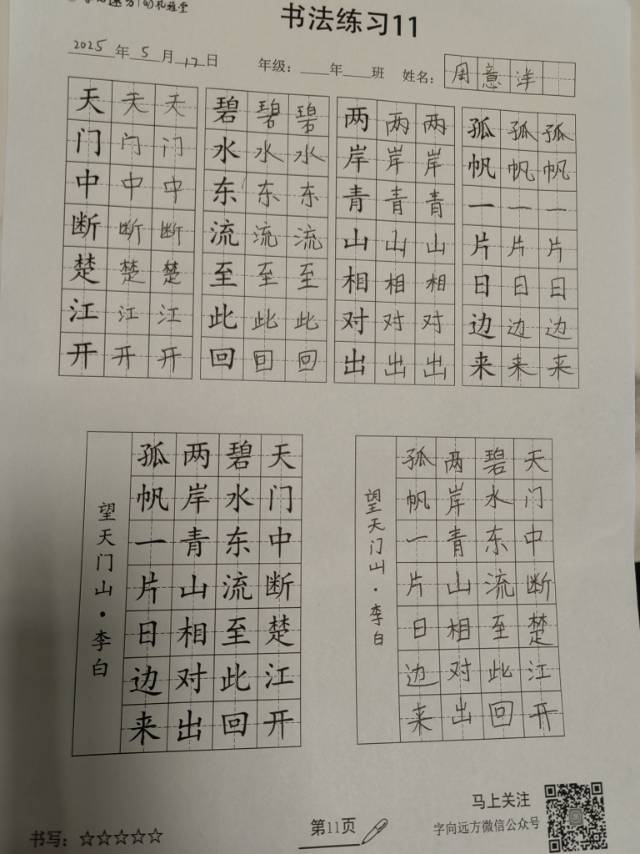 书法练习11
2025年5月12日 年级：___年___班 姓名：周意洋
天天天 碧碧碧 两两两 孤孤孤
门门门 水水水 岸岸岸 帆帆帆
中中中 东东东 青青青 一一一
断断断 流流流 山山山 片片片
楚楚楚 至至至 相相相 日日日
江江江 此此此 对对对 边边边
开开开 回回回 出出出 来来来
天门中断楚江开
碧水东流至此回
两岸青山相对出
孤帆一片日边来
望天门山·李白
天门中断楚江开
碧水东流至此回
两岸青山相对出
孤帆一片日边来
望天门山·李白
马上关注
字向远方微信公众号
书写：☆☆☆☆☆
第11页